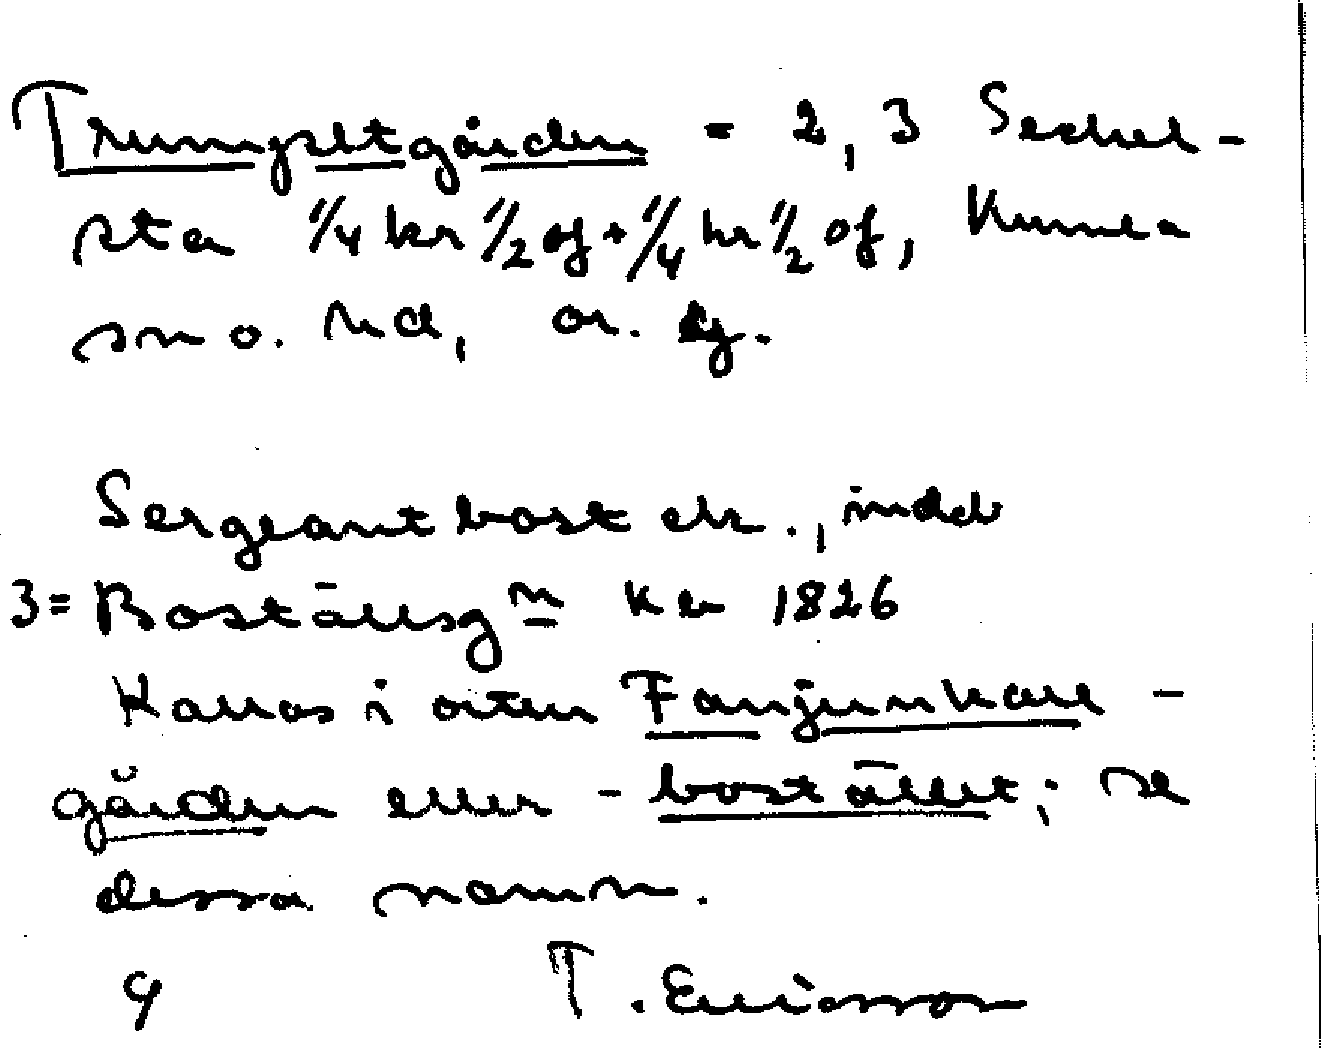 Trumpetgården = 2, 3 Sechel-
sta 1/4 kr 1/2 of + 1/4 kr 1/2 of, Kumla
sn o. hd, ör. lg.
Sergeantbost ekr., indd
3 = Boställsgn Ka 1826
Kallas i orten Fanjunkare-
gården eller -bostället; se
dessa namn.
9 T. Ericsson